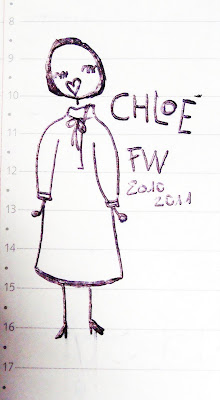 9
10
CHLOÉ
11
12
FW
2010
2011
13
14
15
16
17